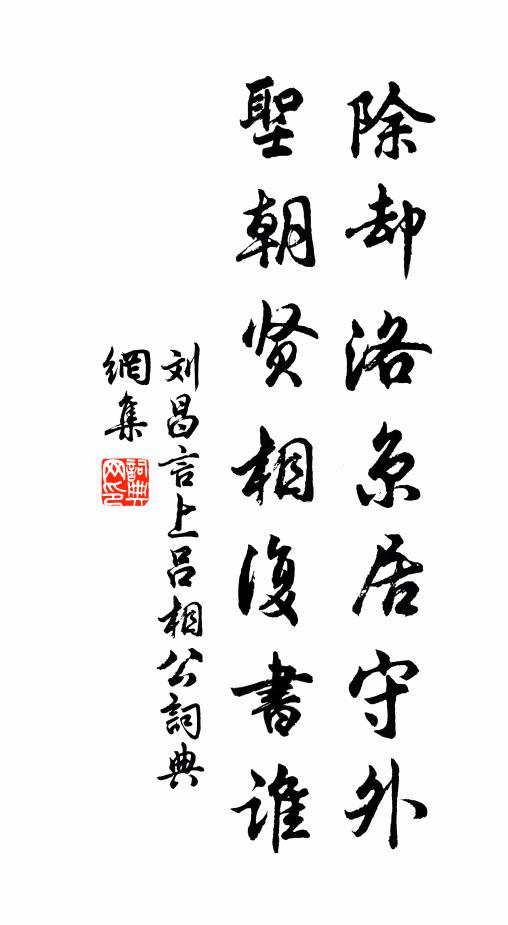 除却洛京居守外
聖朝贤相復書誰
刘昌言上吕相公詞典
網集
詞典网印